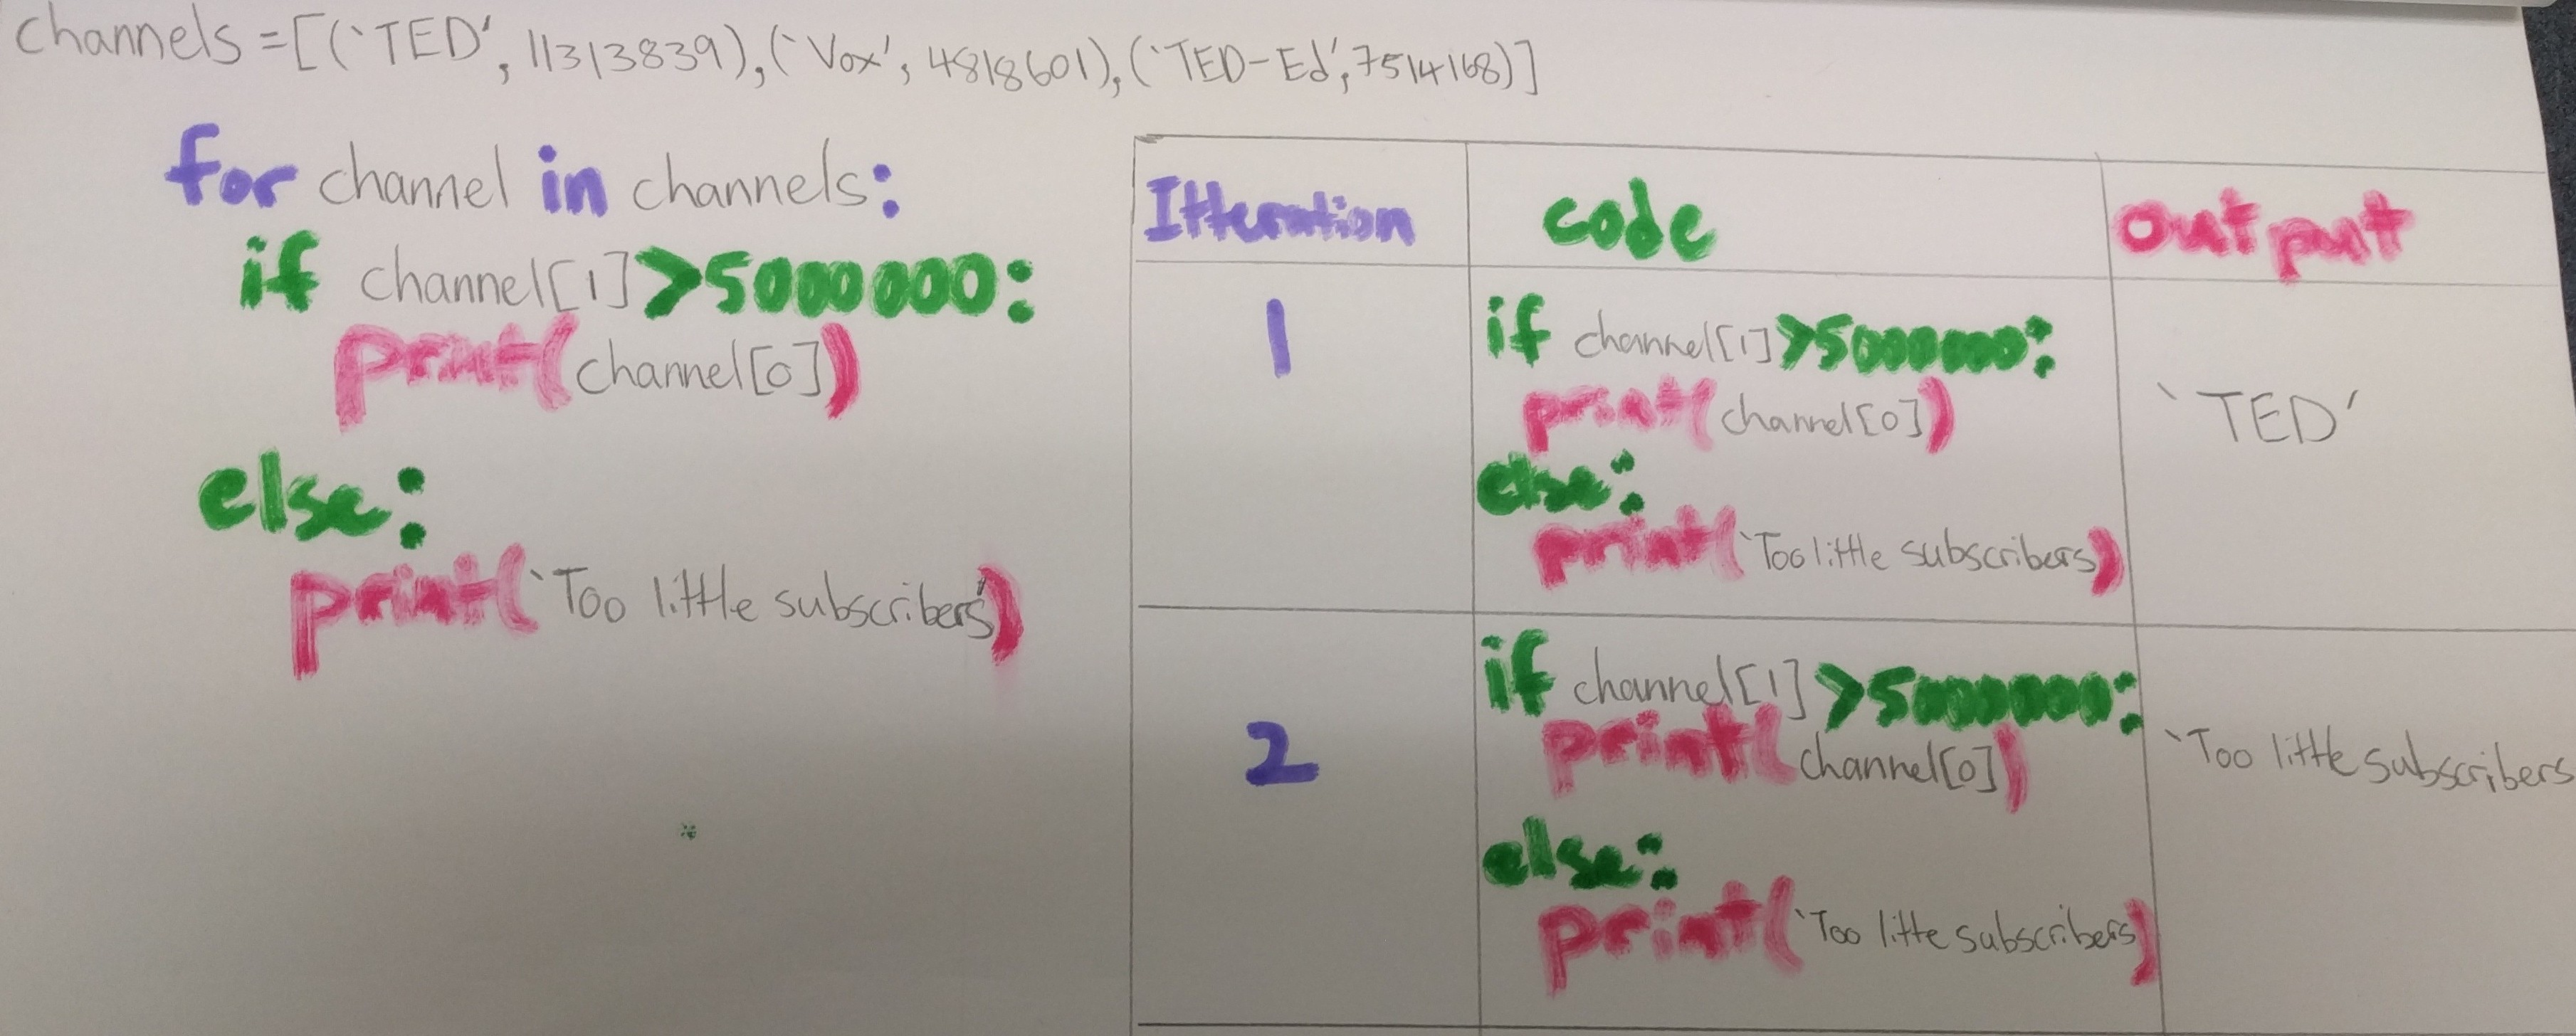 channels =[(`TED', 11313839),(`Vox', 4818601),(`TED-Ed', 7514168)]
for channel in channels:
if channel[1]>5000000:
print(channel[0])
else:
print(`Too little subscribers')
Itteration code output
1
if channel[1]>5000000:
print(channel[0])
else:
print(`Too little subscribers)
`TED'
2
if channel[1]>5000000:
print(channel[0])
else:
print(`Too litte subscribers)
`Too little subscribers